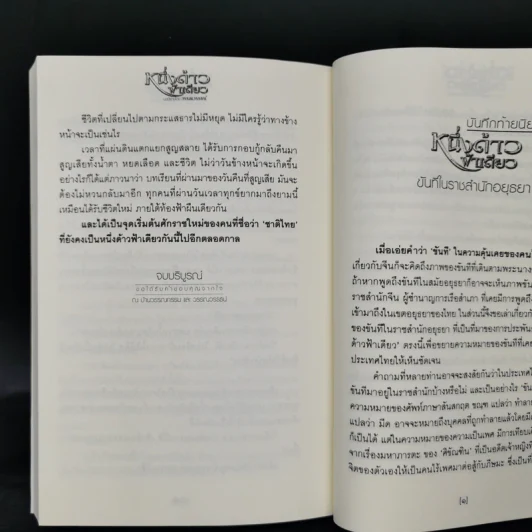 หนึ่งด้าว
ฟ้าเดียว
ชีวิตที่เปลี่ยนไปตามกระแสธารไม่มีหยุด ไม่มีใครรู้ว่าทางข้าง
หน้าจะเป็นเช่นไร
เวลาที่แผ่นดินแตกแยกสูญสลาย ได้รับการกอบกู้กลับคืนมา
สูญเสียทั้งน้ำตา หยดเลือด และชีวิต ไม่ว่าวันข้างหน้าจะเกิดขึ้น
อย่างไรก็ได้แต่ภาวนาว่า บทเรียนที่ผ่านมาของวันคืนที่สูญเสีย มันจะ
ต้องไม่หวนกลับมาอีก ทุกคนที่ผ่านวันเวลาทุกข์ยากมาถึงยามนี้
เหมือนได้รับชีวิตใหม่ ภายใต้ท้องฟ้าผืนเดียวกัน
และได้เป็นจุดเริ่มต้นศักราชใหม่ของคนที่ชื่อว่า 'ชาติไทย'
ที่ยังคงเป็นหนึ่งด้าวฟ้าเดียวกันนี้ไปอีกตลอดกาล
จบบริบูรณ์
ณ บ้านวรรณกรรม และ วรรณวรรธน์
บันทึกท้ายนิย
หนึ่งด้าว
ฟ้าเดียว
ขันทีในราชสำนักอยุธยา
เมื่อเอ่ยคำว่า 'ขันที' ในความคุ้นเคยของคนไ
เกี่ยวกับจีนก็จะคิดถึงภาพของขันทีที่เดินตามพระนาง
ถ้าหากพูดถึงขันทีในสมัยอยุธยาก็อาจจะเห็นภาพขัน
ราชสำนักจีน ผู้ชำนาญการเรือสำเภา ที่เคยมีการพูดถึง
เข้ามาถึงในเขตอยุธยาของไทย ในส่วนนี้จึงขอเล่าเกี่ยวก
ของขันทีในราชสำนักอยุธยา ที่เป็นที่มาของการประพัน
ด้าวฟ้าเดียว' ตรงนี้เพื่อขยายความหมายของขันทีที่เคย
ประเทศไทยให้เห็นชัดเจน
คำถามที่หลายท่านอาจจะสงสัยกันว่าในประเทศไ
ขันทีมาอยู่ในราชสำนักบ้างหรือไม่ และเป็นอย่างไร 'ขัน
ความหมายของศัพท์ภาษาสันสกฤต ขณฺฑ แปลว่า ทำลาย
แปลว่า มีด อาจจะหมายถึงบุคคลที่ถูกทำลายแล้วโดยมี
ก็เป็นได้ แต่ในความหมายของความเป็นเพศ มีการเทียบเคี
จากเรื่องมหาภารตะ ของ 'ศิขัณฑิน' ที่เป็นอดีตเจ้าหญิงที่
จิตของตัวเองให้เป็นคนไร้เพศมาต่อสู้กับภีษมะ ซึ่งเป็นที่